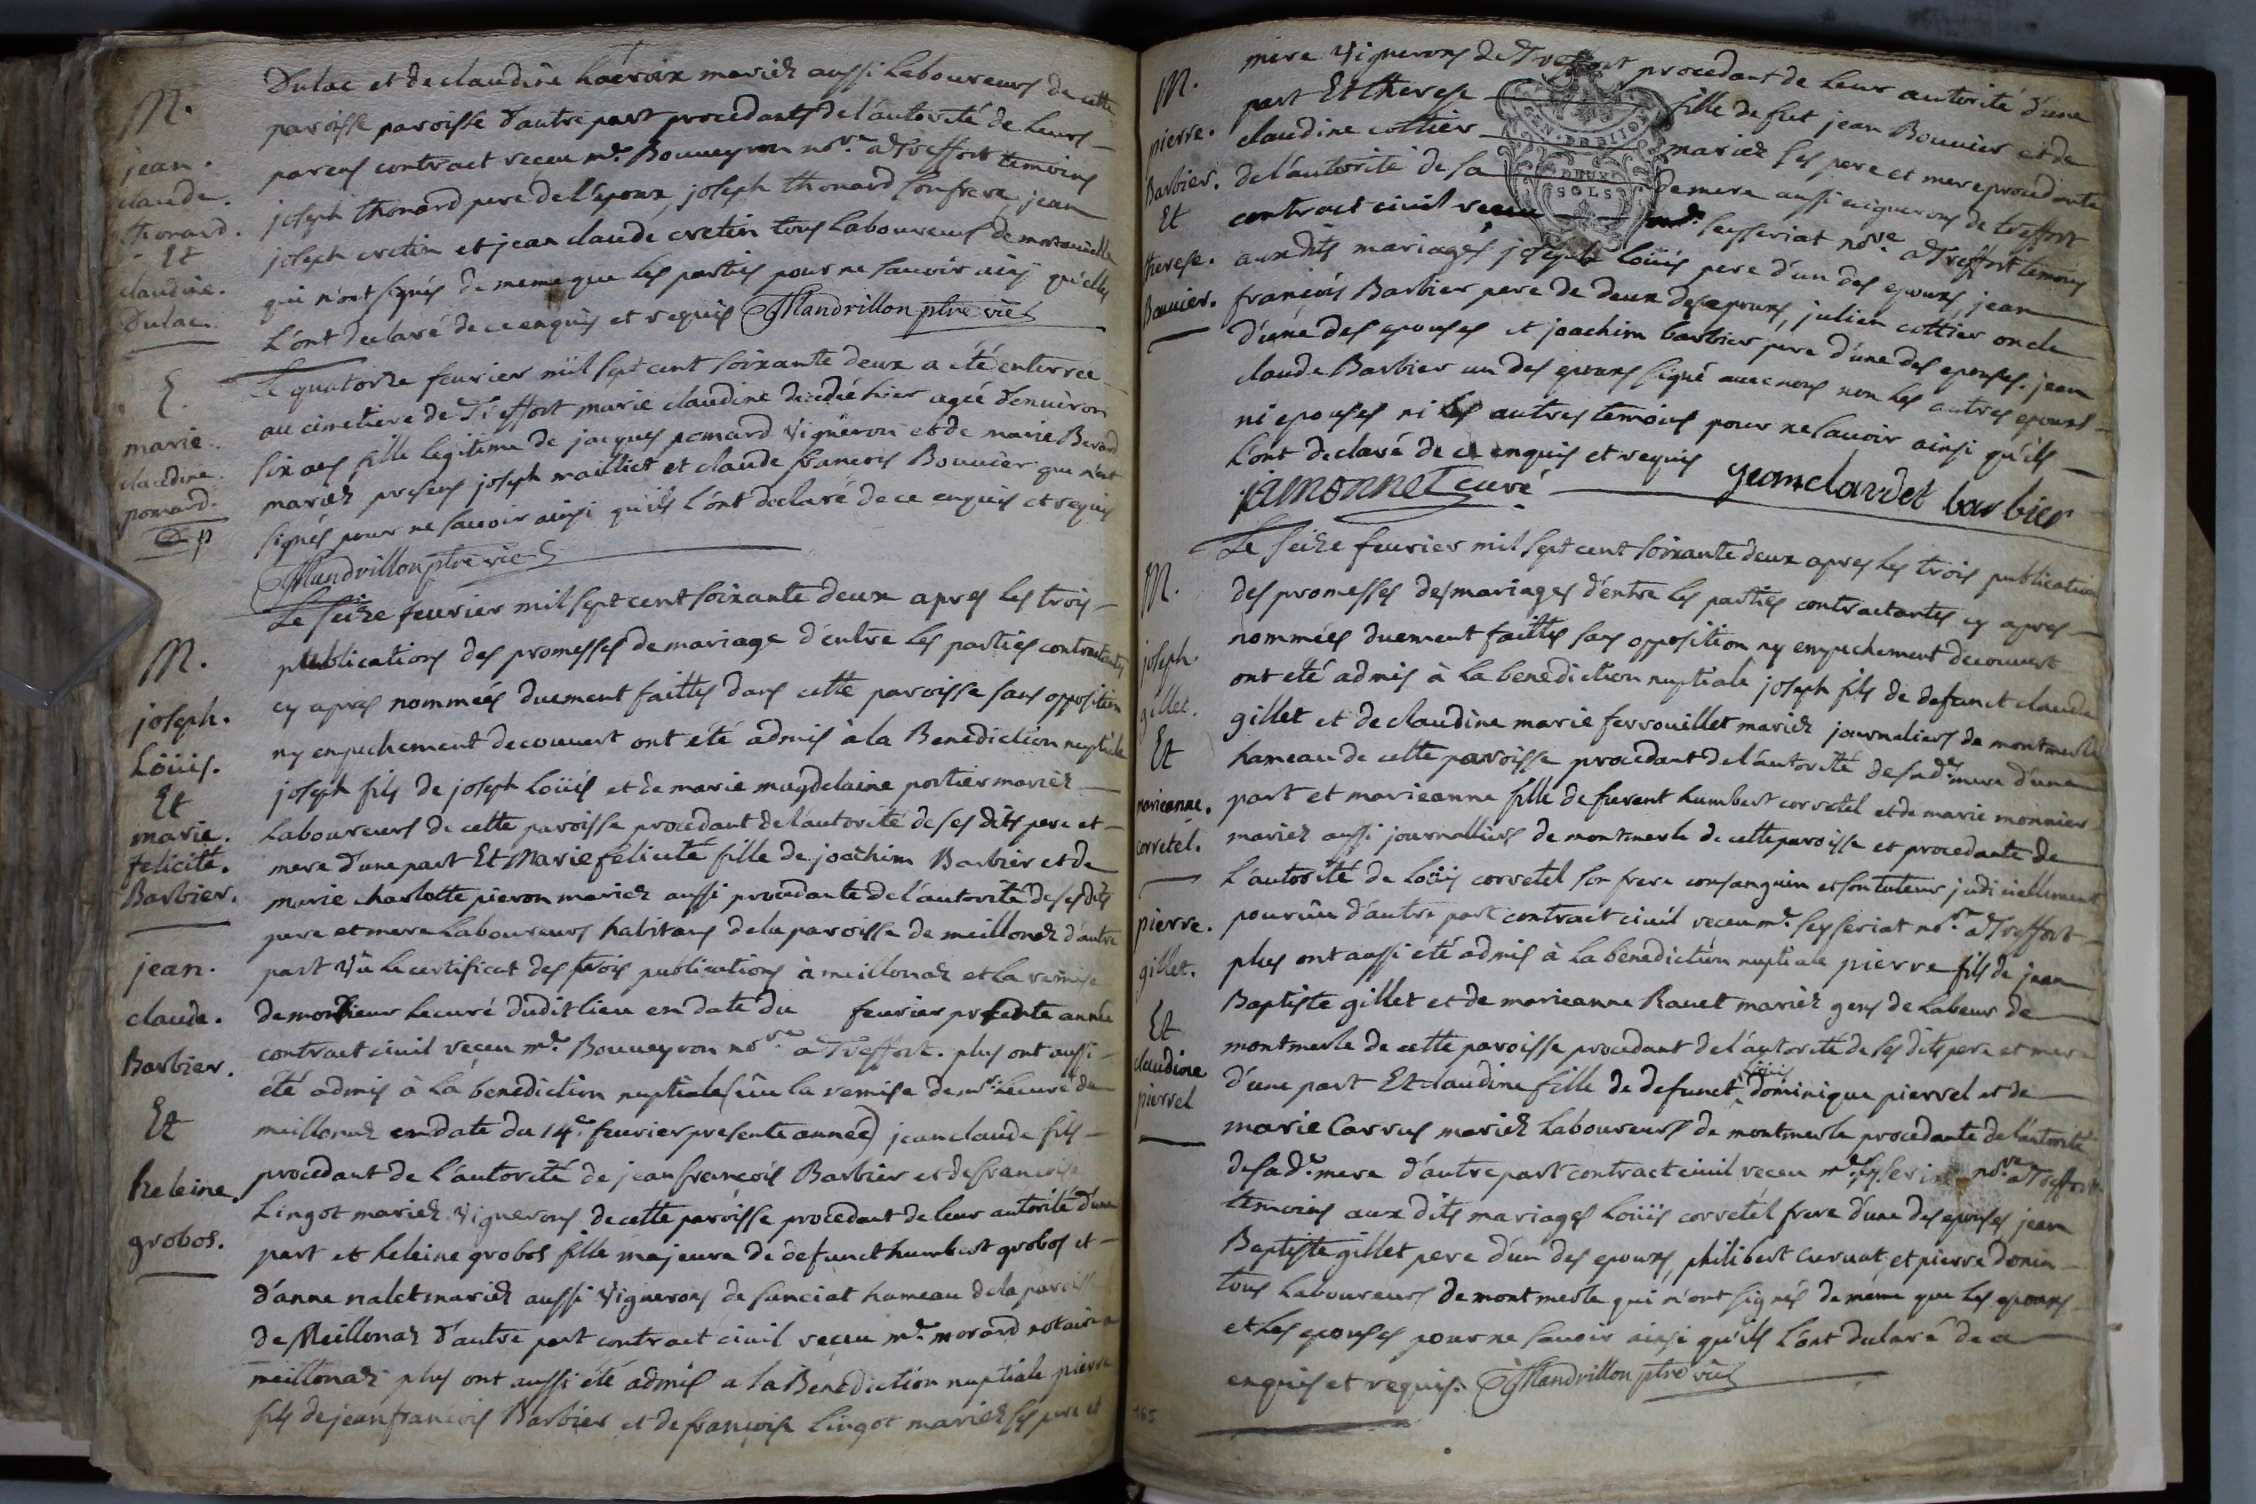 M.
jean.
claude.
thonard.
Et
claudine.
Dulac.
Dulac et de claudine Lacroix mariéz aussi Laboureurs de cette
paroisse paroisse d'autre part procedants de l'autorité de Leurs
parens contract receu me. Bouueyron nore. a Treffort temoins
joseph thonard pere de l'epoux, joseph thonard son frere jean
joseph cretin et jean claude cretin tous Laboureurs de
qui n'ont signés de meme que les parties pour ne sauoir ainsi qu'elles
L'ont declaré de ce enquis et requis Mandrillon ptre vic
E.
marie.
claudine.
pomard.
Le quatorze feurier mil sept cent soixante deux a été enterrée
au cimetiere de Treffort marie claudine decedée hier agée d'enuiron
six ans fille legitime de jacques pomard Vigneron et de marie Berard
mariéz presens joseph mailliet et claude francois Bouuier qui n'ont
signés pour ne sauoir ainsi qu'ils l'ont declaré de ce enquis et requis
Mandrillon ptre vic
M.
joseph.
Loüis.
Et
marie.
felicité.
Barbier.
jean.
claude.
Barbier.
Et
heleine.
grobos.
Le seize feurier mil sept cent soixante deux apres les trois
publications des promesses de mariage d'entre les parties contractantes
cy apres nommées duement faittes dans cette paroisse sans opposition
ny enpechement decouuert ont été admis à la Benediction nuptiale
joseph fils de joseph Loüis et de marie magdelaine portier mariéz
Laboureurs de cette paroisse procedant de l'autorité de ses dits pere et
mere d'une part Et Marie felicité fille de joachim Barbier et de
marie charlotte pieron mariéz aussi procedante de l'autorité de ses dits
pere et mere Laboureurs habitans de la paroisse de meillonaz d'autre
part Vû le certificat des trois publications à meillonaz et la remise
de monsieur Le curé dudit lieu en date du feurier presente année
contract ciuil receu me. Bouueyron nore. a Treffort. plus ont aussi
été admis à la benediction nuptiale (vûe la remise de mr. le curé de
meillonaz en date du 14e. feurier presente année) jean claude fils
procedant de l'autorité de jean françois Barbier et de francoise
Lingot mariéz Vignerons de cette paroisse procedant de leur autorité d'une
part et heleine grobos fille majeure de defunct humbert grobos et
d'anne nalet mariéz aussi Vignerons de sanciat hameau de la paroisse
de Meillonaz d'autre part contract ciuil receu me. morard notaire a
meillonaz plus ont aussi été admis a la Benediction nuptiale pierre
fils de jean francois Barbier et de françoise Lingot mariéz ses pere et
M.
pierre.
Barbier.
Et
therese.
Bouuier.
mere Vignerons de Treffort procedant de leur autorité d'une
part Et therese fille de fut jean Bouuier et de
claudine cottier mariéz ses pere et mere procedante
de l'autorité de sa de mere aussi vignerons de treffort
contract ciuil receu me. seyseriat nore a Treffort temoins
DEUX
SOLS
auxdits mariages joseph Loüis pere d'un des epoux, jean
françois Barbier pere de deux des epoux, julien cottier oncle
d'une des epouses et joachim barbier pere d'une des epouses. jean
claude Barbier un des epoux signé auec nous non les autres epoux
ni epouses ni les autres temoins pour ne sauoir ainsi qu'ils
L'ont declaré de ce enquis et requis
jamonnet curé
jeanclaudet barbier
M.
joseph.
gillet.
Et
marieanne.
corretel.
pierre.
gillet.
Et
claudine
pierrel
Le seize feurier mil sept cent soixante deux apres les trois publication
des promesses des mariages d'entre les parties contractantes cy apres
nommées duement faittes sans opposition ny enpechement decouuert
ont été admis à la benediction nuptiale joseph fils de defunct claude
gillet et de claudine marie ferrouillet mariéz journaliers de montmerle
hameau de cette paroisse procedant de l'autorité de sa de. mere d'une
part et marieanne fille de feu humbert corretel et de marie monnier
mariéz aussi journalliers de montmerle de cette paroisse et procedante de
L'autorité de Loüis corretel son frere consanguin et son tuteur judiciellement
pouruûe d'autre part contract ciuil receu me. seyseriat nore. a Treffort
plus ont aussi eté admis à la benediction nuptiale pierre fils de jean
Baptiste gillet et de marieanne Rauet mariéz gens de Labeur de
montmerle de cette paroisse procedant de l'autorité de ses dits pere et mere
d'une part Et claudine fille de defunct Loüis dominique pierrel et de
marie Carrus mariéz Laboureurs de montmerle procedante de l'autorité
de sa de. mere d'autre part contract ciuil receu me. seyseriat nore a Treffort
temoins aux dits mariages Loüis corretel frere d'une des epouses jean
Baptiste gillet pere d'un des epoux, philibert curuat, et pierre donin
tous Laboureurs de montmerle qui n'ont signés de meme que les epoux
et les epouses pour ne sauoir ainsi qu'ils l'ont declaré de ce
enquis et requis. Mandrillon ptre vic
165